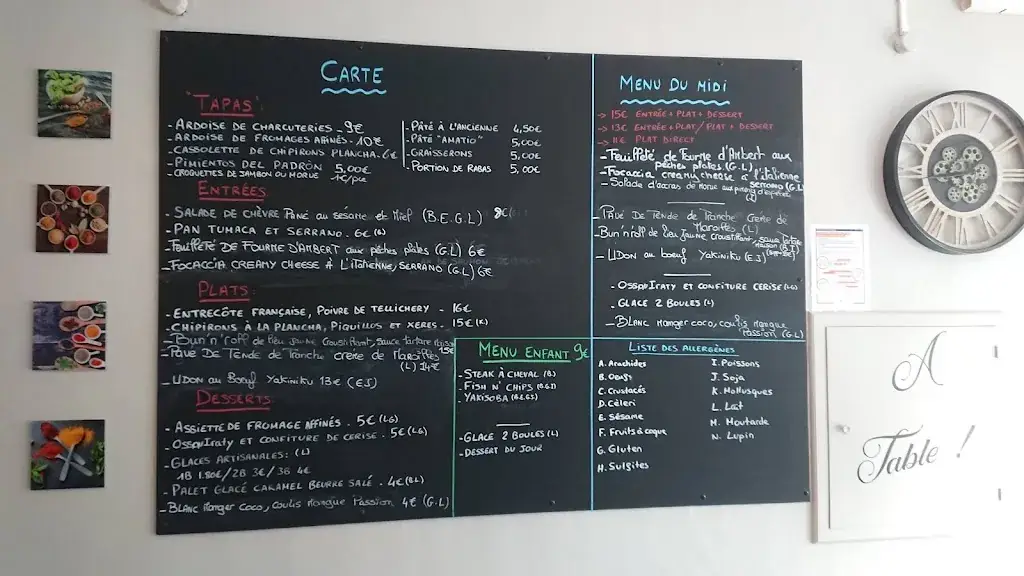 CARTE
"TAPAS":
- ARDOISE DE CHARCUTERIES - 9€
- ARDOISE DE FROMAGES AFFINÉS - 10€
- CASSOLETTE DE CHIPIRONS PLANCHA. 6€
- PIMIENTOS DEL PADRÓN 5,00€
- CROQUETTES DE JAMBON OU MORUE 1€/pce
- PÂTÉ À L'ANCIENNE 4,50€
- PÂTÉ "AMATIO" 5,00€
- GRAISSERONS 5,00€
- PORTION DE RABAS 5,00€
ENTRÉES
- SALADE DE CHÈVRE PANÉ au SÉSAME et MIEL (B.E.G.L) 8€
- PAN TUMACA ET SERRANO. 6€ (G)
- FEUILLETÉ DE FOURME D'AMBERT aux pêches plates (G.L) 6€
- FOCACCIA CREAMY CHEESE À L'ITALIENNE, SERRANO (G.L) 6€
PLATS:
- ENTRECÔTE FRANÇAISE, POIVRE DE TELLICHERY - 16€
- CHIPIRONS À LA PLANCHA, PIQUILLOS ET XERES. - 15€ (K)
- Bun'n'roll de lieu jaune croustillant, sauce tartare
15€
- PAVÉ DE Tende de Tranche Crème de Maroilles
(L) 14€
- UDON au Boeuf Yakiniku 13€ (E.J)
DESSERTS:
- ASSIETTE DE FROMAGE AFFINÉS. 5€ (LG)
- Ossau Iraty ET CONFITURE DE CERISE. 5€ (LG)
- GLACES ARTISANALES: (L)
1B 1.80€/2B 3€/3B 4€
- PALET GLACÉ CARAMEL BEURRE SALÉ. 4€ (B.L)
- BLANC Manger COCO, COULIS Mangue Passion 4€ (G.L)
MENU ENFANT 9€
- STEAK À CHEVAL (B)
- FISH N' CHIPS (B.G.I)
- YAKISOBA (B.E.G.J)
- GLACE 2 BOULES (L)
- DESSERT DU JOUR
MENU DU MIDI
→ 15€ ENTRÉE + PLAT + DESSERT
→ 13€ ENTRÉE + PLAT / PLAT + DESSERT
→ 11€ PLAT DIRECT
- Feuilleté de Fourme d'Ambert aux
pêches plates (G.L)
- Focaccia creamy cheese à l'italienne
SERRANO (G.L)
- Salade d'accras de morue aux
- PAVÉ DE Tende de Tranche Crème de
Maroilles (L)
- Bun'n'roll de lieu jaune croustillant, sauce tartare
maison
- UDON au boeuf Yakiniku (E.J)
- Ossau Iraty ET CONFITURE CERISE (LG)
- GLACE 2 BOULES (L)
- BLANC Manger coco, coulis mangue
Passion (G.L)
LISTE DES ALLERGÈNES
A. Arachides
B. Oeufs
C. Crustacés
D. Céleri
E. Sésame
F. Fruits à coque
G. Gluten
H. Sulfites
I. Poissons
J. Soja
K. Mollusques
L. Lait
M. Moutarde
N. Lupin
A
Table !